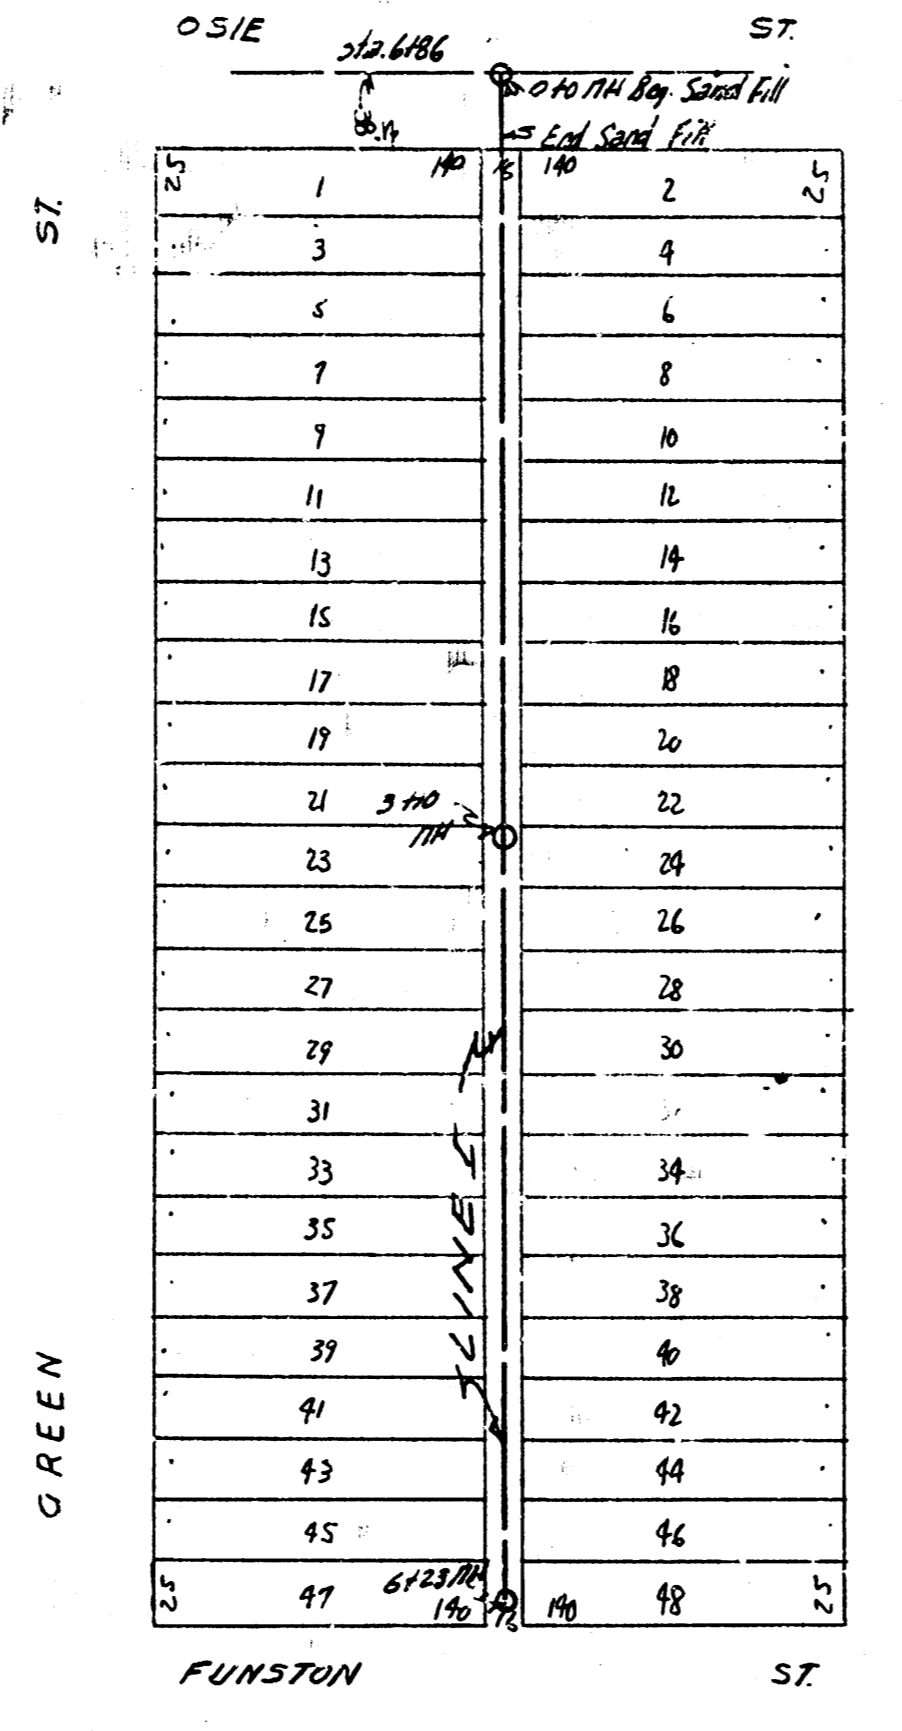 OSIE ST.
sta. 6+86
0+0 MH Beg. Sand Fill
End Sand Fill
ST.
25 140 15 140 25
1 2
3 4
5 6
7 8
9 10
11 12
13 14
15 16
17 18
19 20
21 3+10 22
MH
23 24
25 26
27 28
29 30
31
33 34
35 36
37 38
39 40
41 42
43 44
45 46
6+23 MH
25 47 140 15 140 48 25
LINE
GREEN
FUNSTON ST.